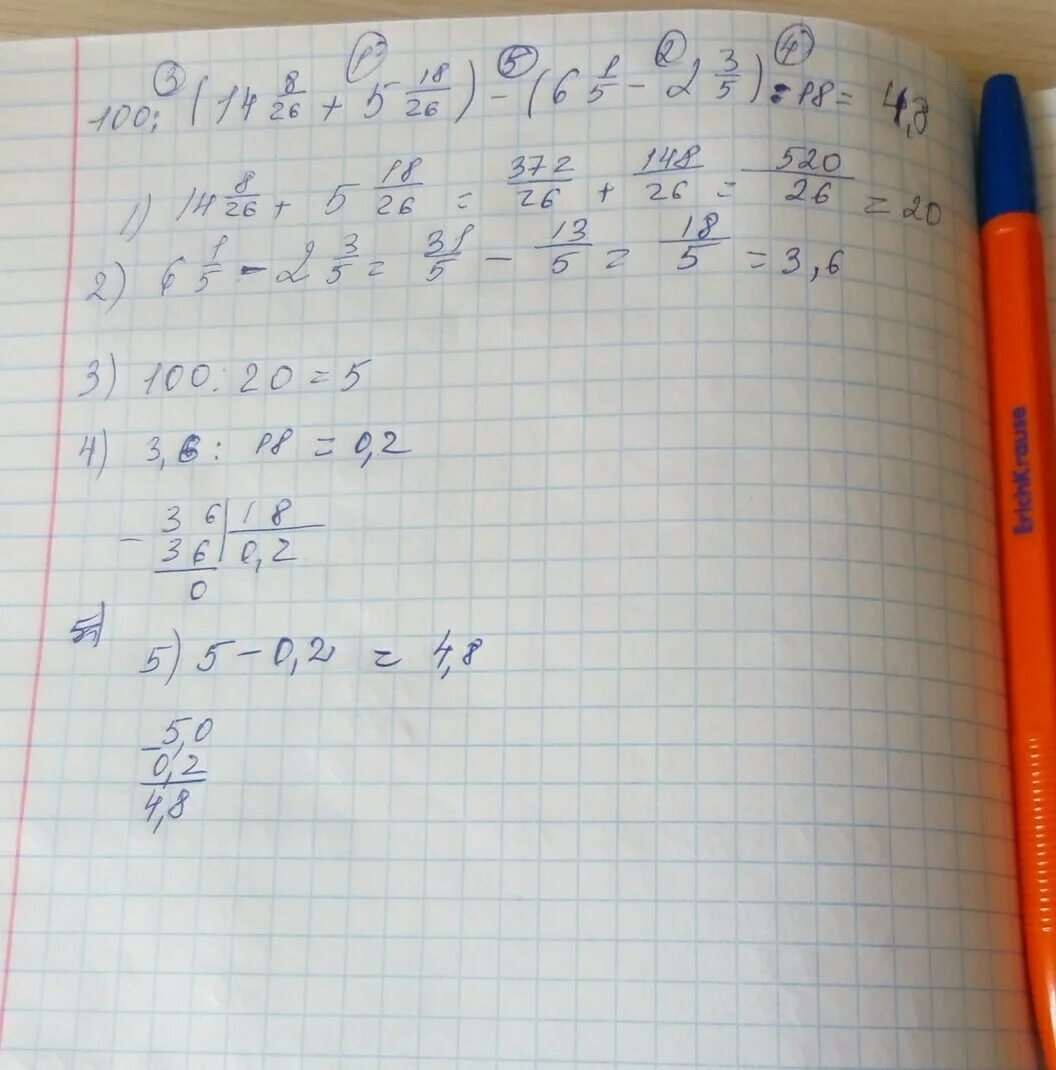 3 1 5 2 4
100 : (14 8/26 + 5 18/26) - (6 1/5 - 2 3/5) : 18 = 4,8
1) 14 8/26 + 5 18/26 = 372/26 + 148/26 = 520/26 = 20
2) 6 1/5 - 2 3/5 = 31/5 - 13/5 = 18/5 = 3,6
3) 100 : 20 = 5
4) 3,6 : 18 = 0,2
- 3 6 | 1 8
3 6 | 0,2
0
5)
5) 5 - 0,2 = 4,8
- 5,0
0,2
4,8
ErichKrause